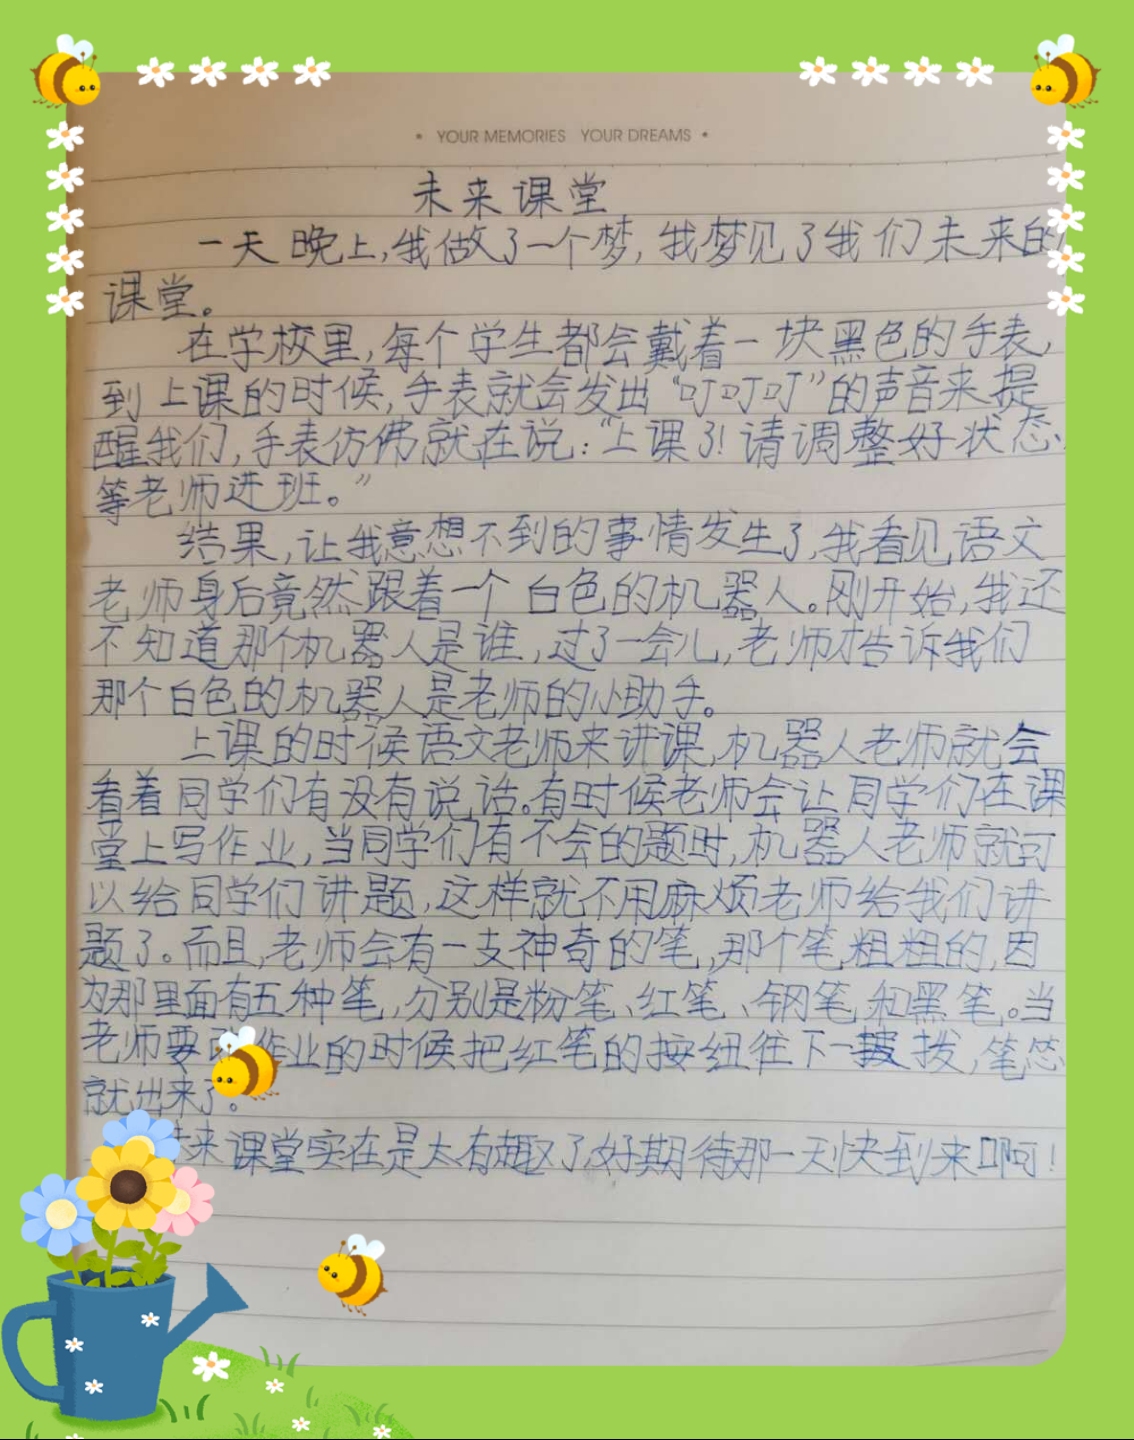 YOUR MEMORIES YOUR DREAMS
未来课堂
一天晚上,我做了一个梦,我梦见了我们未来的
课堂。
在学校里,每个学生都会戴着一块黑色的手表,
到上课的时候,手表就会发出“叮叮叮”的声音来提
醒我们,手表仿佛就在说:“上课了!请调整好状态,
等老师进班。”
结果,让我意想不到的事情发生了,我看见语文
老师身后竟然跟着一个白色的机器人。刚开始,我还
不知道那个机器人是谁,过了一会儿,老师才告诉我们
那个白色的机器人是老师的小助手。
上课的时候语文老师来讲课,机器人老师就会
看着同学们有没有说话。有时候老师会让同学们在课
堂上写作业,当同学们有不会的题时,机器人老师就可
以给同学们讲题,这样就不用麻烦老师给我们讲
题了。而且,老师会有一支神奇的笔,那个笔粗粗的,因
为那里面有五种笔,分别是粉笔、红笔、钢笔和黑笔。当
老师要 作业的时候把红笔的按纽往下一拨,笔芯
就出来了。
来课堂实在是太有趣了,好期待那一天快到来啊!